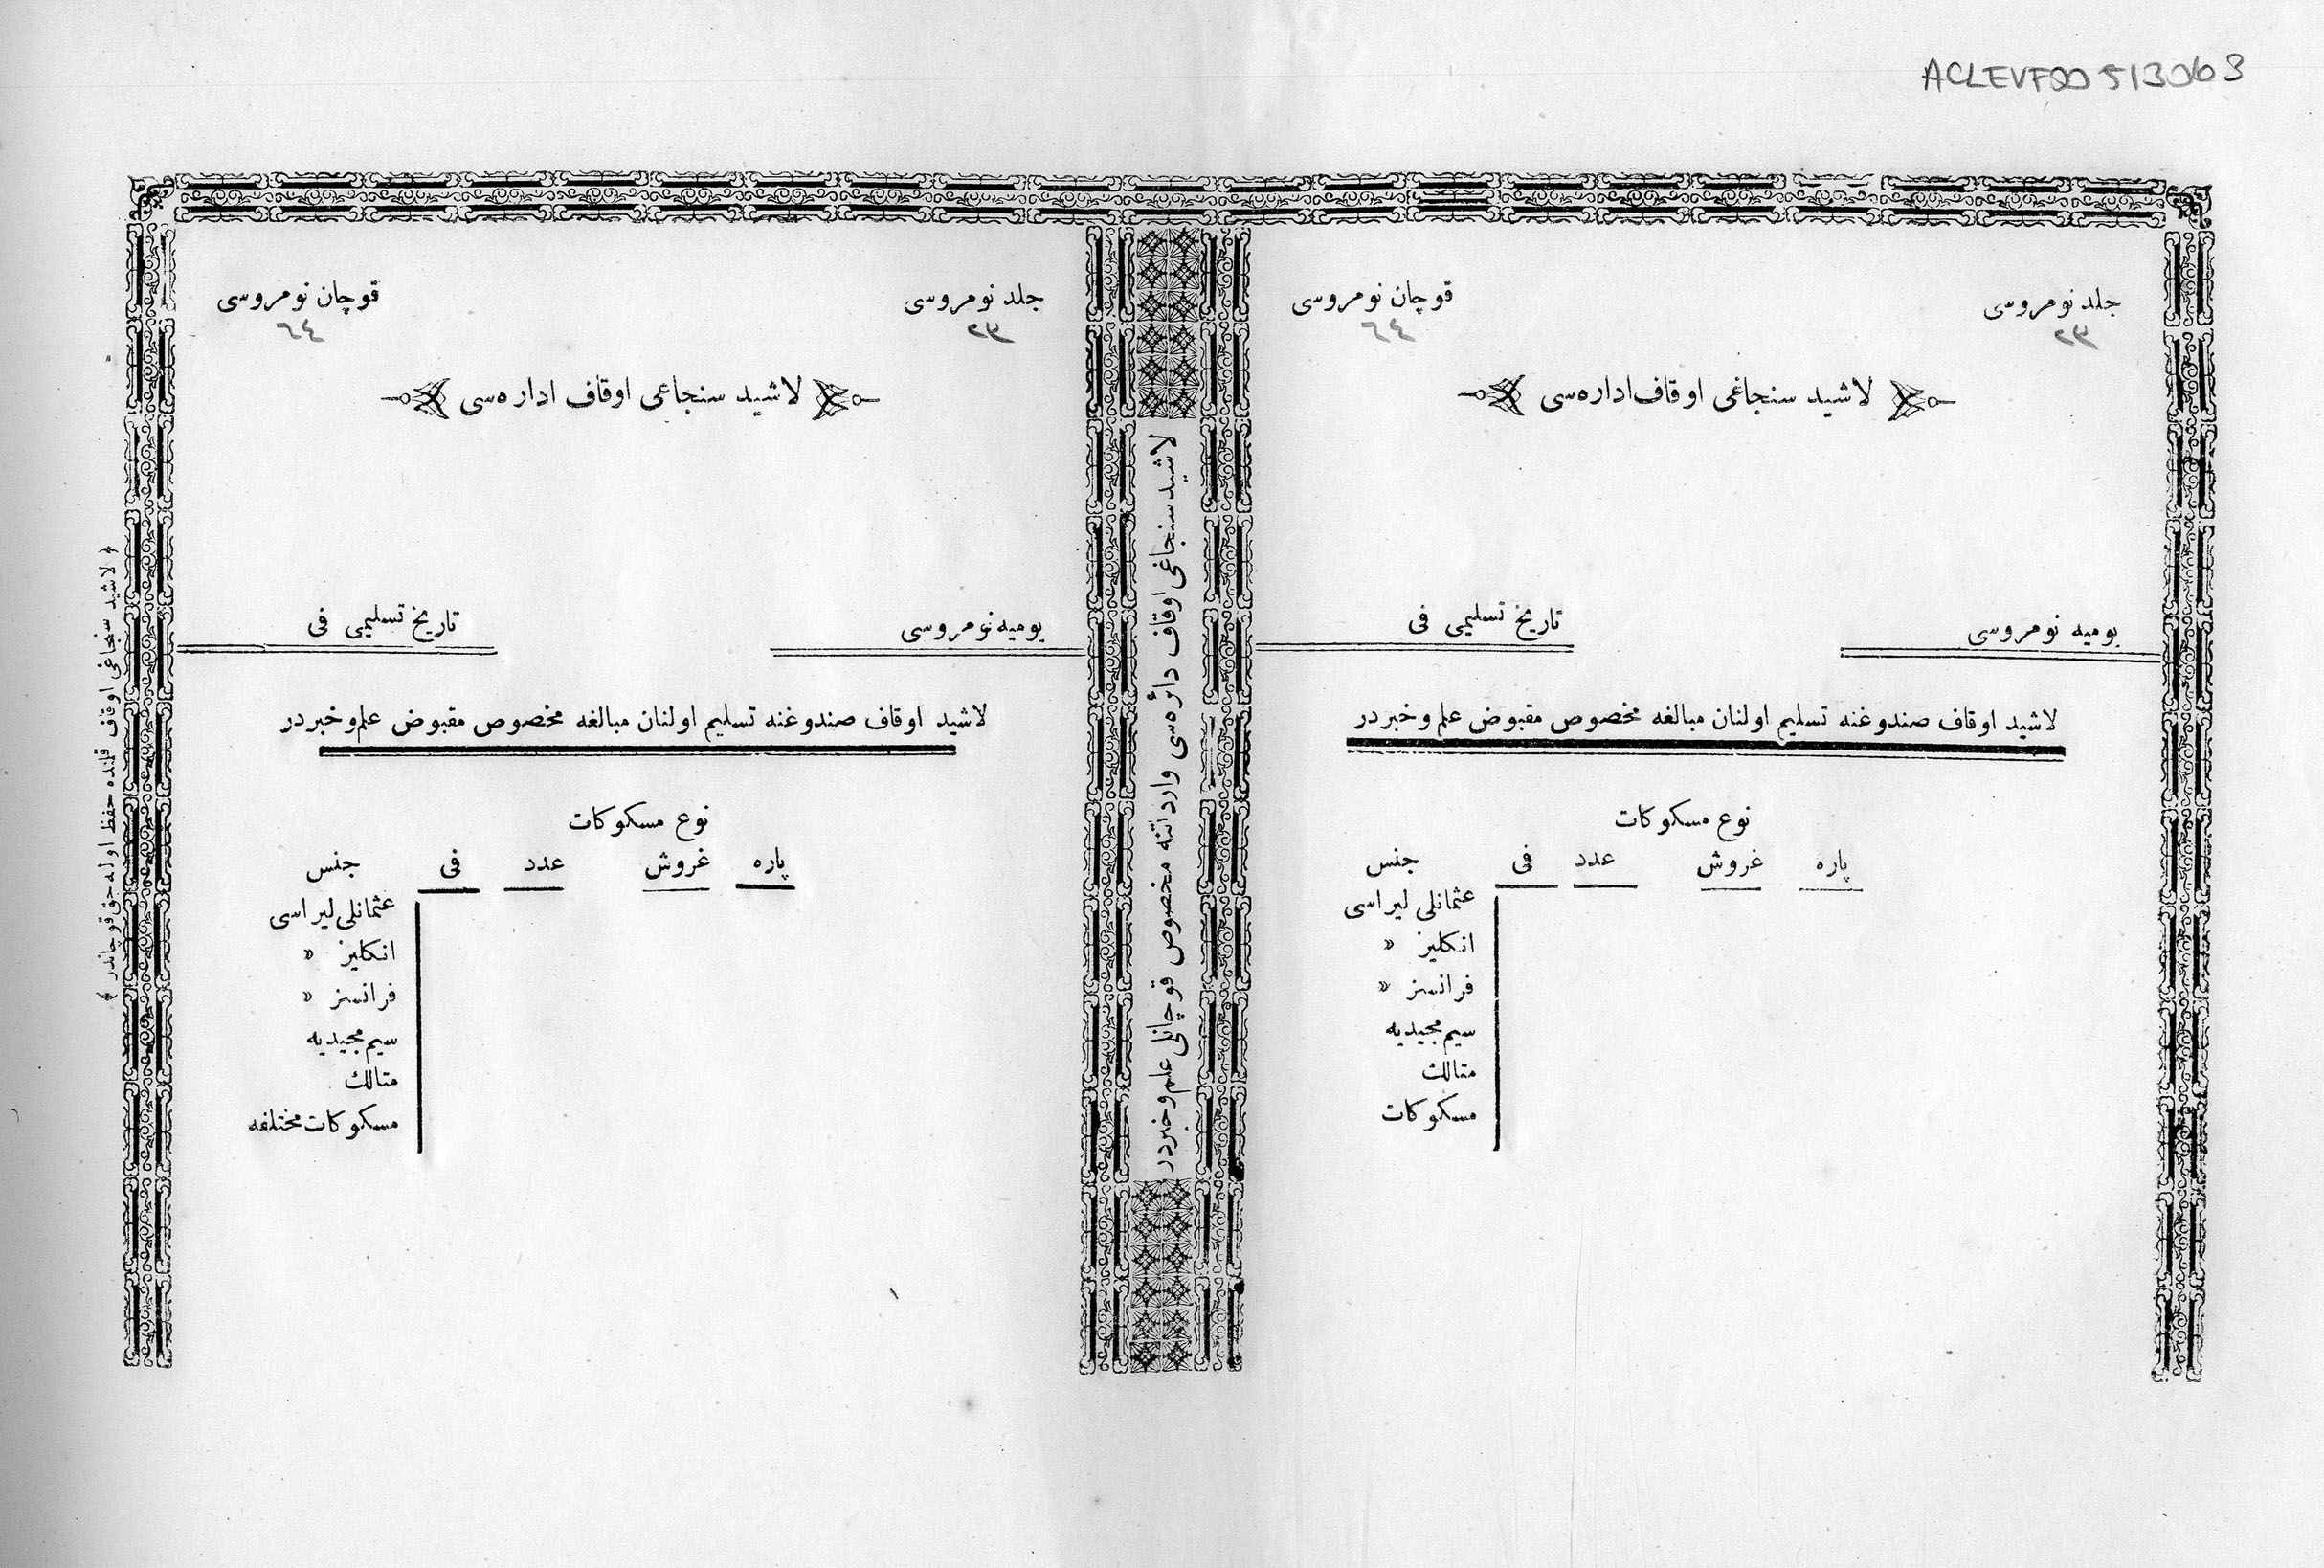 ACLEVF00513063
جلد نومروسی
٢٣
قوچان نومروسی
٦٤
لاشید سنجاغی اوقاف اداره‌سی
یومیه نومروسی
تاریخ تسلیمی فی
لاشید اوقاف صندوغنه تسلیم اولنان مبالغه مخصوص مقبوض علم وخبردر
نوع مسکوکات
پاره غروش عدد فی جنس
عثمانلی لیراسی
انکلیز »
فرانسز »
سیم مجیدیه
متالك
مسکوکات
لاشید سنجاغی اوقاف دائره‌سی وارداتنه مخصوص قوچانلی علم وخبردر
جلد نومروسی
٢٣
قوچان نومروسی
٦٤
لاشید سنجاغی اوقاف اداره‌سی
یومیه نومروسی
تاریخ تسلیمی فی
لاشید اوقاف صندوغنه تسلیم اولنان مبالغه مخصوص مقبوض علم وخبردر
نوع مسکوکات
پاره غروش عدد فی جنس
عثمانلی لیراسی
انکلیز »
فرانسز »
سیم مجیدیه
متالك
مسکوکات مختلفه
﴿ لاشید سنجاغی اوقاف قلمنده حفظ اوله‌جق قوچاندر ﴾